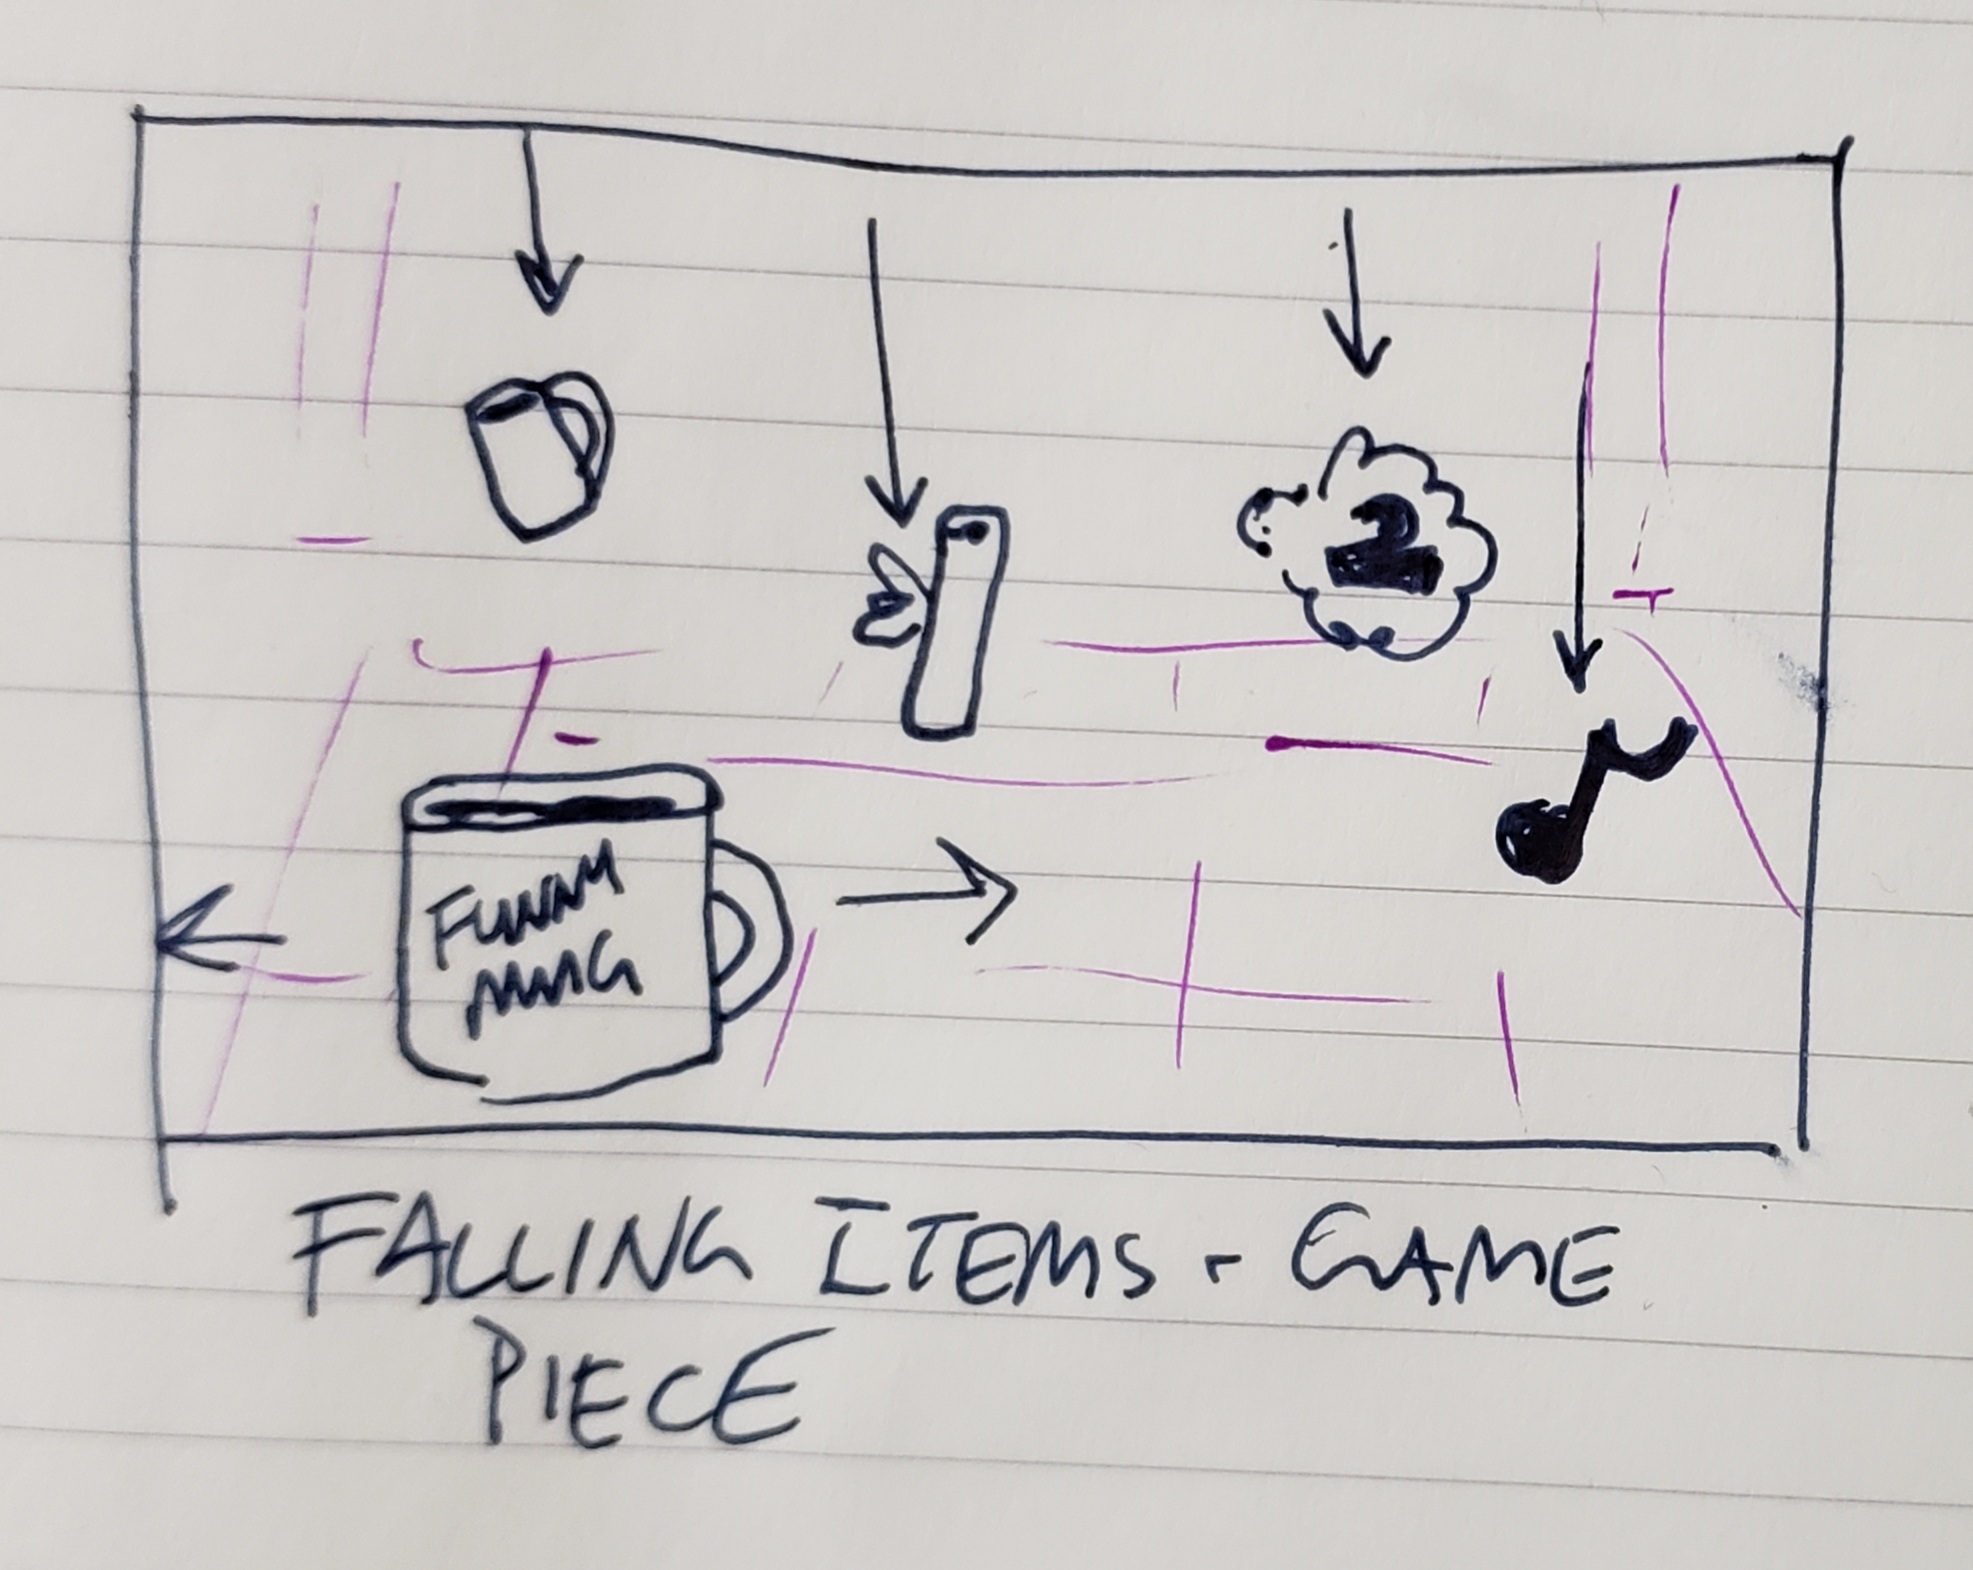 FUNNY
MUG
FALLING ITEMS - GAME
PIECE